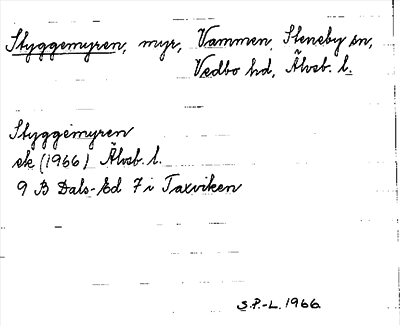 Styggemyren, myr, Vammen, Steneby sn,
Vedbo hd, Älvsb. l.
Styggemyren
ek (1966) Älvsb. l.
9 B Dals-Ed 7 i Taxviken
S.P.-L. 1966